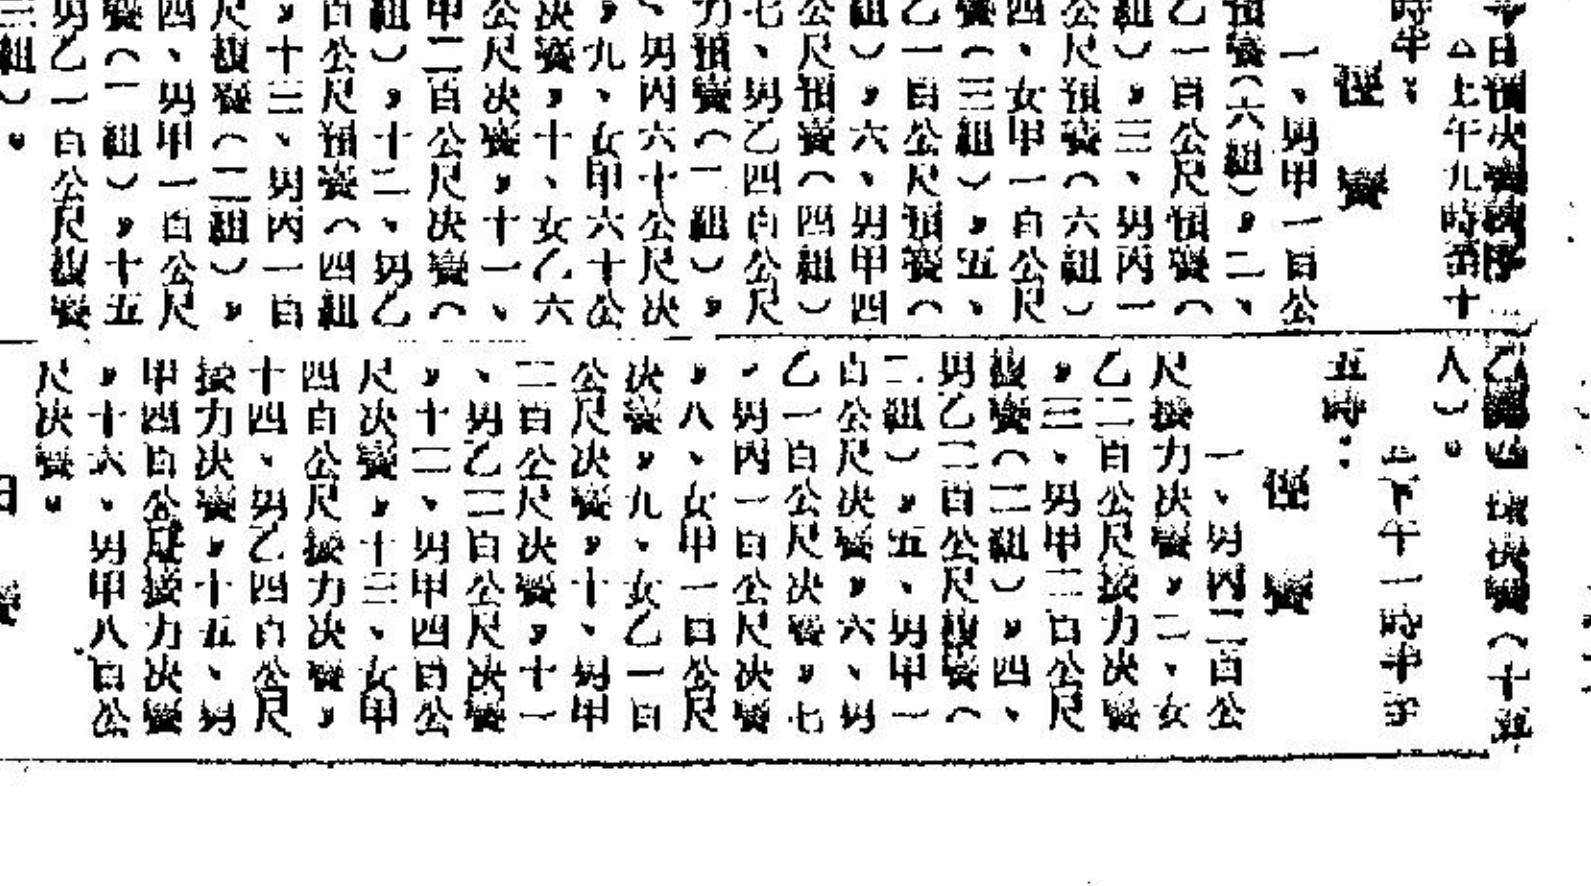 今日預決賽秩序
△上午九時至十
時半：
徑　賽
一、男甲一百公
預賽（六組），二、
乙一百公尺預賽（
組），三、男丙一
公尺預賽（六組）
四、女甲一百公尺
賽（三組），五、
乙一百公尺預賽（
組），六、男甲四
公尺預賽（四組）
七、男乙四百公尺
力預賽（二組），
、男丙六十公尺決
，九、女甲六十公
決賽，十、女乙六
公尺決賽，十一、
甲二百公尺決賽（
組），十二、男乙
百公尺預賽（四組
，十三、男丙一百
尺複賽（二組），
四、男甲一百公尺
賽（一組），十五
男乙一百公尺複賽
三組）。
決賽（十五
人）。
△下午一時半至
五時：
徑　賽
一、男丙二百公
尺接力決賽，二、女
乙二百公尺接力決賽
，三、男甲二百公尺
複賽（二組），四、
男乙二百公尺複賽（
二組），五、男甲一
百公尺決賽，六、男
乙一百公尺決賽，七
，男丙一百公尺決賽
，八、女甲一百公尺
決賽，九、女乙一百
公尺決賽，十、男甲
二百公尺決賽，十一
、男乙二百公尺決賽
，十二、男甲四百公
尺決賽，十三、女甲
四百公尺接力決賽，
十四、男乙四百公尺
接力決賽，十五、男
甲四百公尺接力決賽
，十六、男甲八百公
尺決賽。
日
賽